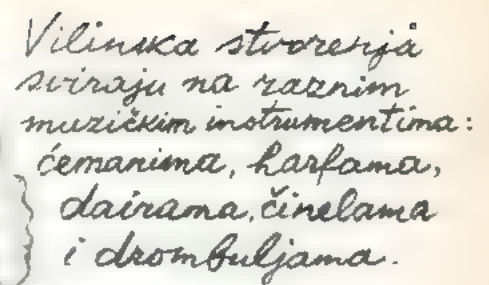 Vilinska stvorenja
sviraju na raznim
muzičkim instrumentima:
ćemanima, harfama,
dairama, činelama
i drombuljama.